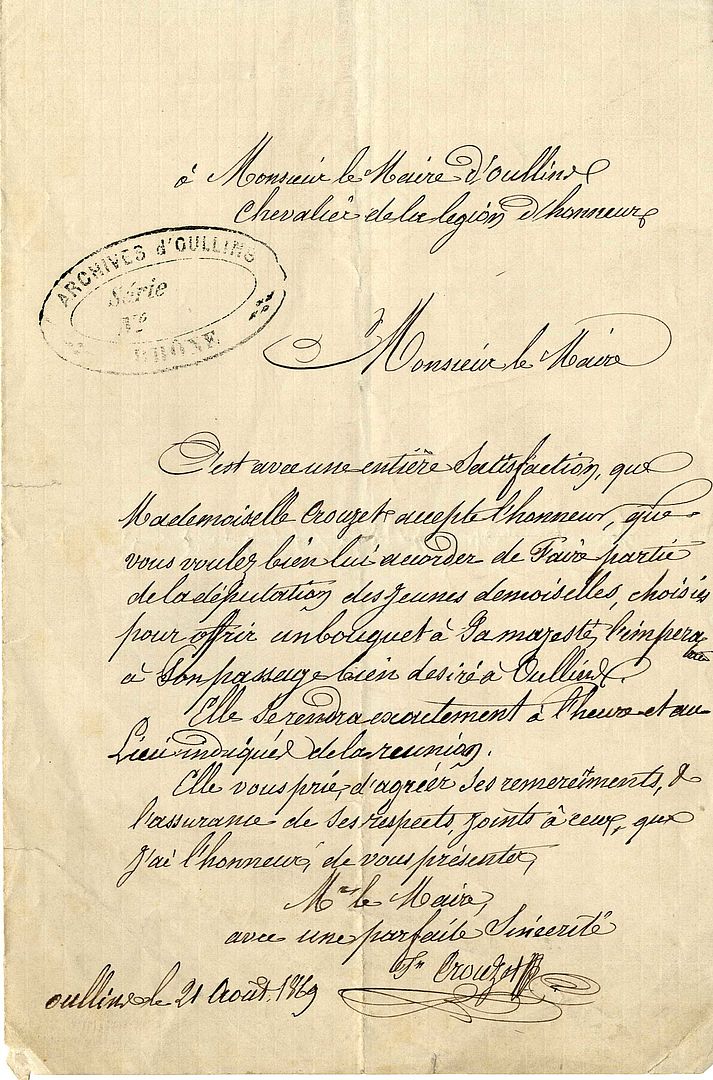 à Monsieur le Maire d'oullins
Chevalier de la legion d'honneur
ARCHIVES d'OULLINS
Série
N°
RHÔNE
Monsieur le Maire
C'est avec une entière Satisfaction, que
Mademoiselle Crouzet accepte l'honneur, que
vous voulez bien lui accorder de Faire partie
de la députation des jeunes demoiselles, choisies
pour offrir un bouquet à Sa majesté, l'impera
trice
à Son passage bien desiré à Oullins.
Elle Se rendra exactement à l'heure et au
Lieu indiqués de la reunion.
Elle vous prie, d'agréér Ses remerciments, &
l'assurance de Ses respects, joints à ceux, que
J'ai l'honneur, de vous présenter,
Mr le Maire,
avec une parfaite Sincerité
Crouzet
oullins le 21 Août 1869